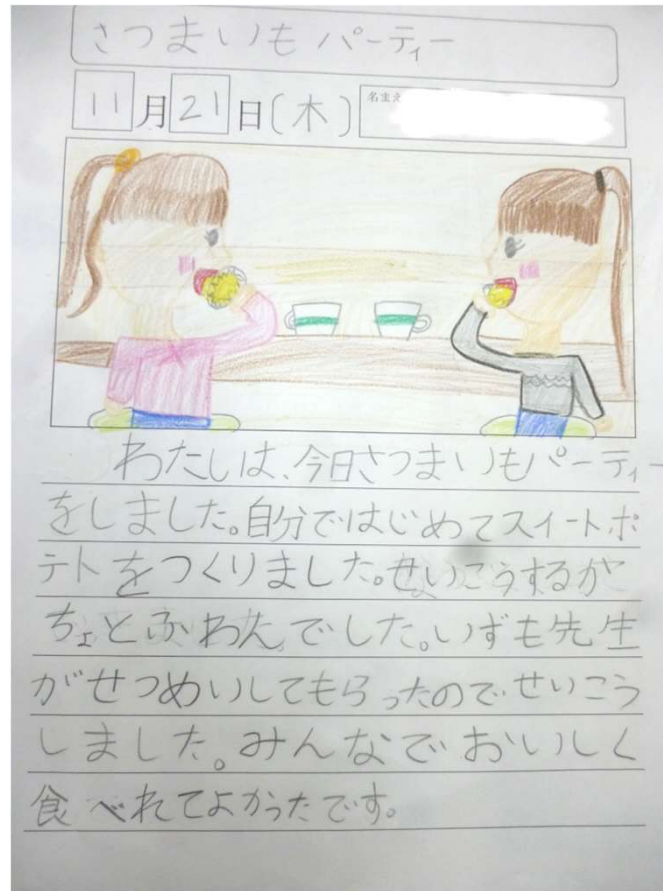 さつまいもパーティー
11月21日(木)
名まえ
わたしは、今日さつまいもパーティー
をしました。自分ではじめてスイートポ
テトをつくりました。せいこうするが
ちょとふわんでした。いずも先生
がせつめいしてもらったのでせいこう
しました。みんなでおいしく
食べれてよかったです。